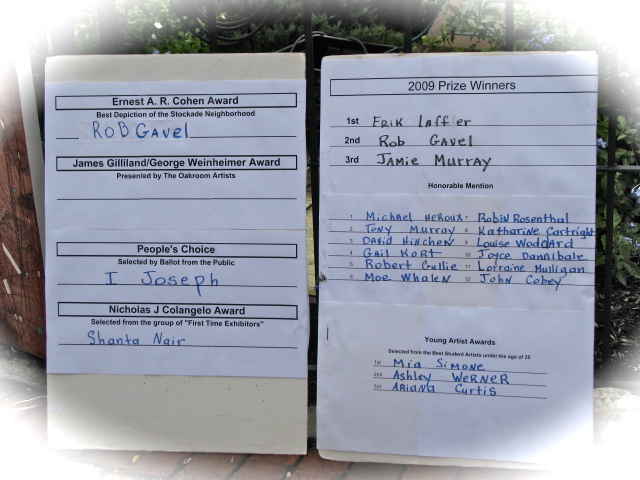 Ernest A. R. Cohen Award
Best Depiction of the Stockade Neighborhood
Rob Gavel
James Gilliland/George Weinheimer Award
Presented by The Oakroom Artists
People's Choice
Selected by Ballot from the Public
I Joseph
Nicholas J Colangelo Award
Selected from the group of "First Time Exhibitors"
Shanta Nair
2009 Prize Winners
1st Erik Laffer
2nd Rob Gavel
3rd Jamie Murray
Honorable Mention
1 Michael Heroux 7 Robin Rosenthal
2 Tony Murray 8 Katharine Cartright
3 David Hinchen 9 Louise Woodard
4 Gail Kort 10 Joyce Dannibale
5 Robert Gullie 11 Lorraine Mulligan
6 Moe Whalen 12 John Cobey
Young Artist Awards
Selected from the Best Student Artists under the age of 25
1st Mia Simone
2nd Ashley Werner
3rd Ariana Curtis